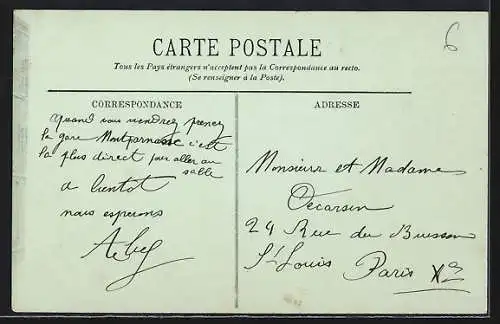 CARTE POSTALE
Tous les Pays étrangers n'acceptent pas la Correspondance au recto.
(Se renseigner à la Poste).
6
CORRESPONDANCE
quand vous viendrez prenez
la gare Montparnasse c'est
la plus direct pour aller au
sable
a bientot
nous esperons
ADRESSE
Monsieur et Madame
Decarsin
24 Rue du Buisson
St Louis Paris Xe